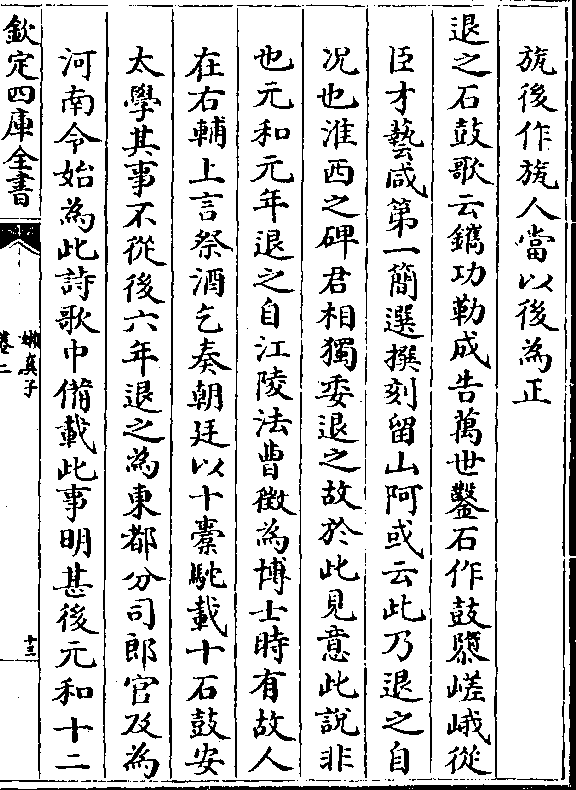 旊後作旊人當以後為正
退之石鼓歌云鐫功勒成告萬世鑿石作鼓隳嵯峨從
臣才藝咸第一簡選撰刻留山阿或云此乃退之自
况也淮西之碑君相獨委退之故於此見意此說非
也元和元年退之自江陵法曹徵為博士時有故人
在右輔上言祭酒乞奏朝廷以十橐駝載十石鼓安
太學其事不從後六年退之為東都分司郎官及為
河南令始為此詩歌中備載此事明甚後元和十二
欽定四庫全書
嬾真子
卷二
十三